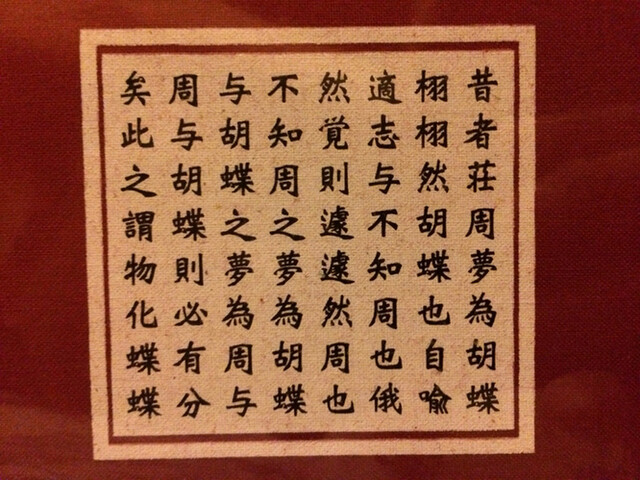 昔者荘周夢為胡蝶
栩栩然胡蝶也自喩
適志与不知周也俄
然覚則遽遽然周也
不知周之夢為胡蝶
与胡蝶之夢為周与
周与胡蝶則必有分
矣此之謂物化蝶蝶